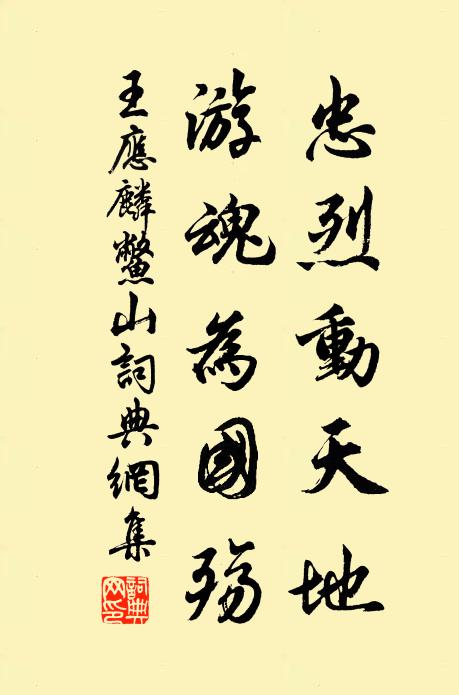 忠烈動天地
游魂為國殤
王應麟鱉山詞典網集
詞典网印